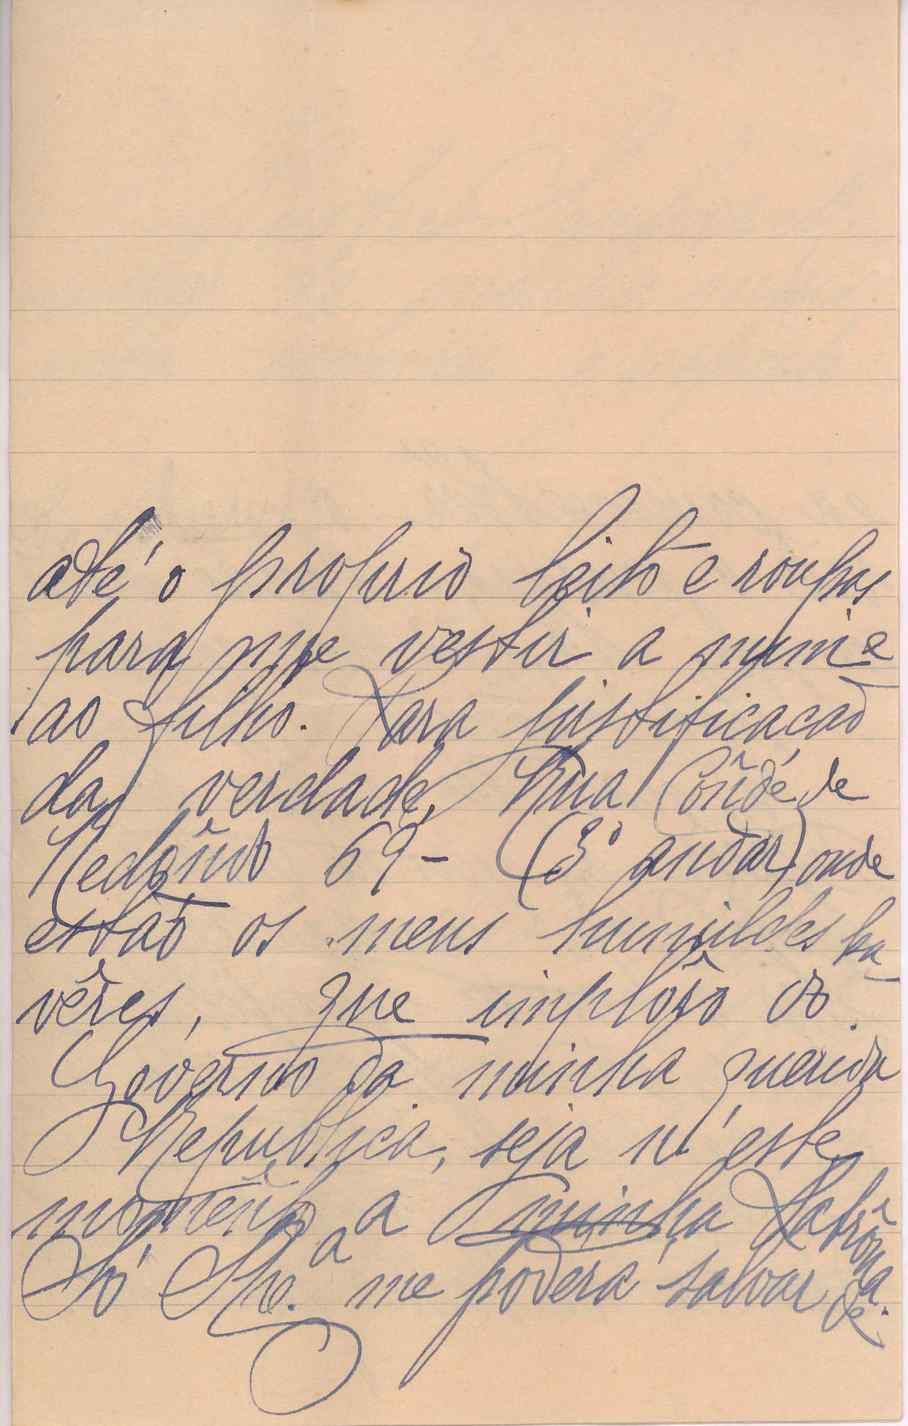 até o proprio leito e roupas
para me vestir a mim e
ao filho. Para justificacaõ
da verdade, Rua Conde de
Redondo 69 - (3º andar) onde
estaõ os meus humildes ha-
vêres, que implóro ao
Governo da minha querida
Republica, seja n'este
momento a minha Patrôna.
Só Ella me poderá salvar de